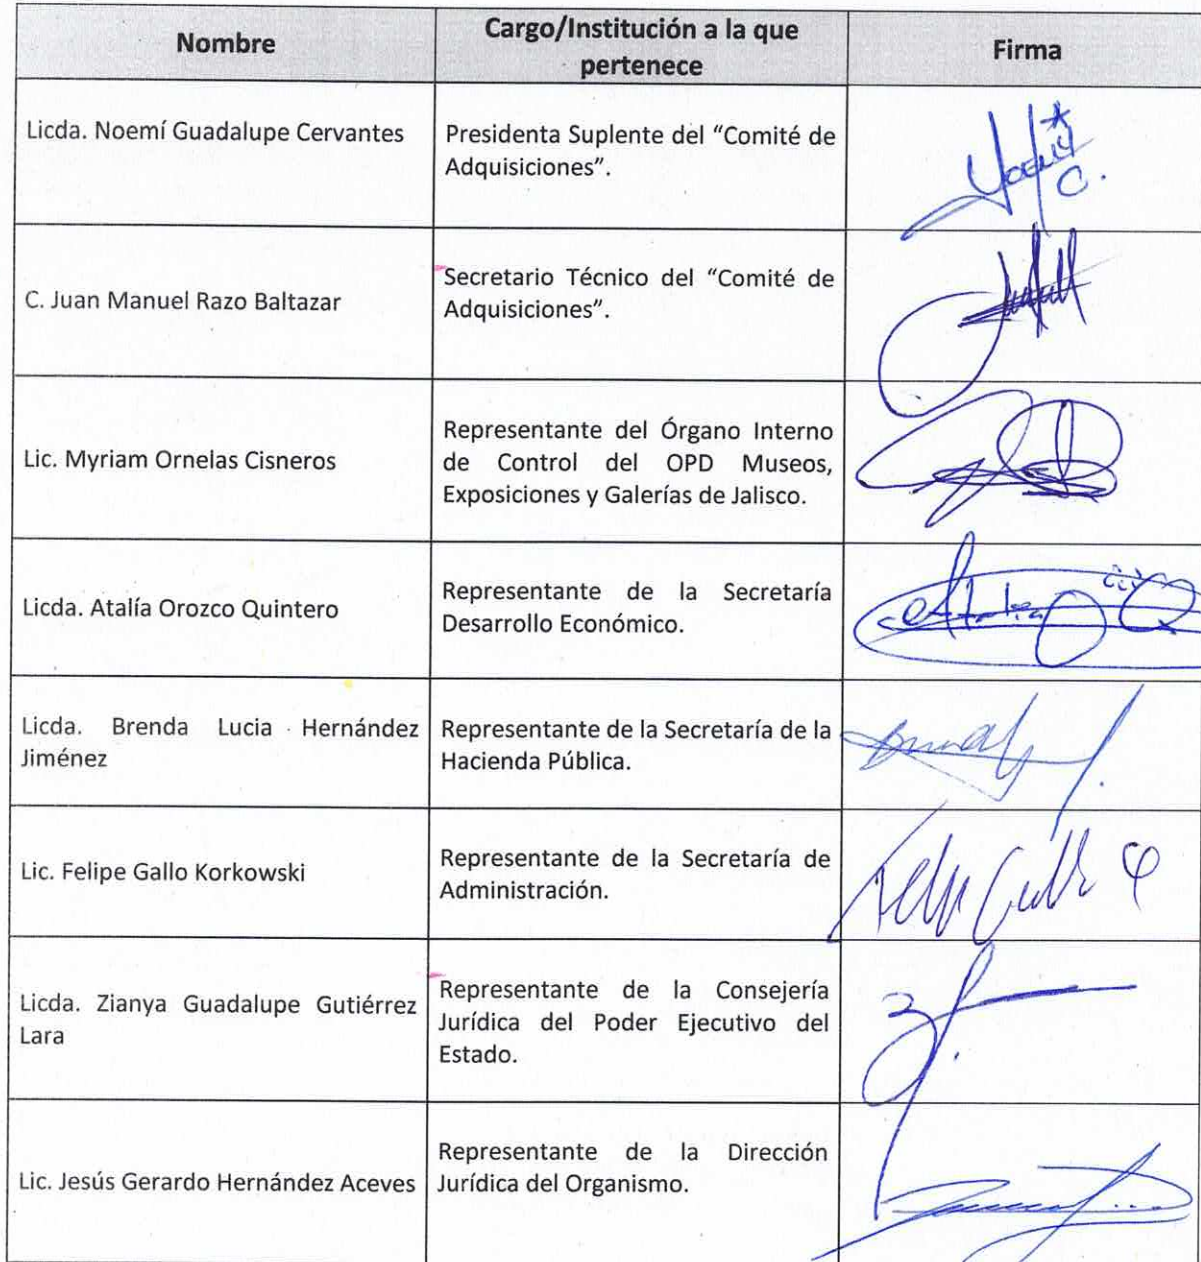 Nombre
Cargo/Institución a la que
pertenece
Firma
Licda. Noemí Guadalupe Cervantes
Presidenta Suplente del “Comité de
Adquisiciones”.
C. Juan Manuel Razo Baltazar
Secretario Técnico del “Comité de
Adquisiciones”.
Lic. Myriam Ornelas Cisneros
Representante del Órgano Interno
de Control del OPD Museos,
Exposiciones y Galerías de Jalisco.
Licda. Atalía Orozco Quintero
Representante de la Secretaría
Desarrollo Económico.
Licda. Brenda Lucia Hernández
Jiménez
Representante de la Secretaría de la
Hacienda Pública.
Lic. Felipe Gallo Korkowski
Representante de la Secretaría de
Administración.
Licda. Zianya Guadalupe Gutiérrez
Lara
Representante de la Consejería
Jurídica del Poder Ejecutivo del
Estado.
Lic. Jesús Gerardo Hernández Aceves
Representante de la Dirección
Jurídica del Organismo.